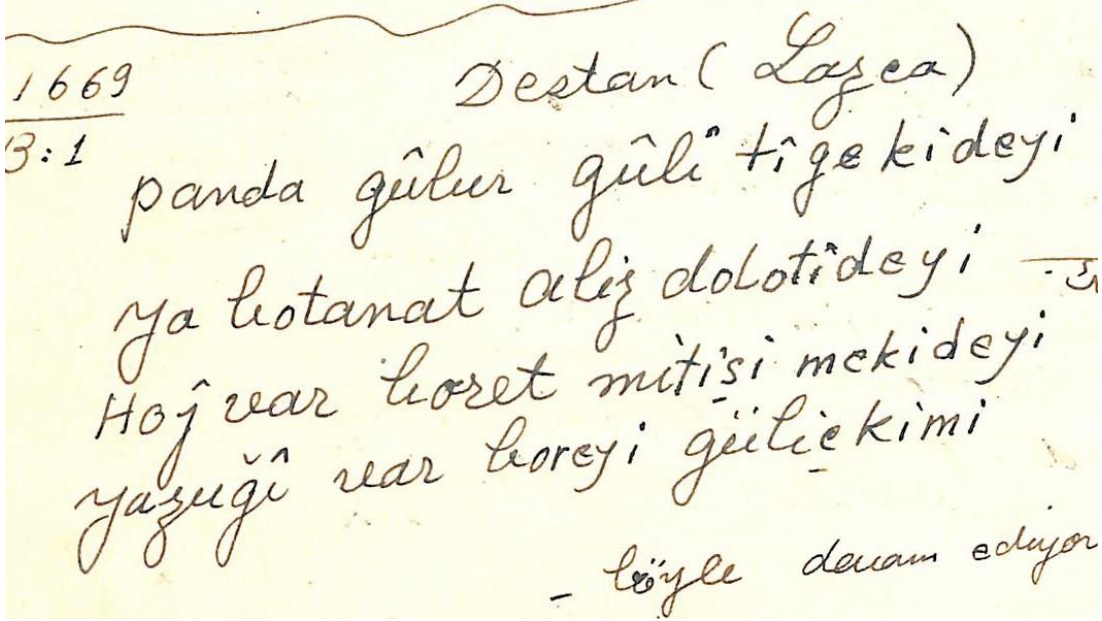 1669
B:1
Destan ( Lazca )
panda gûlur gûli tîge kideyi
ya kotanat aliz dolotîdeyi
Hoj var koret mitişi mekideyi
yazuğî var koreyi gülişkimi
- böyle devam ediyor